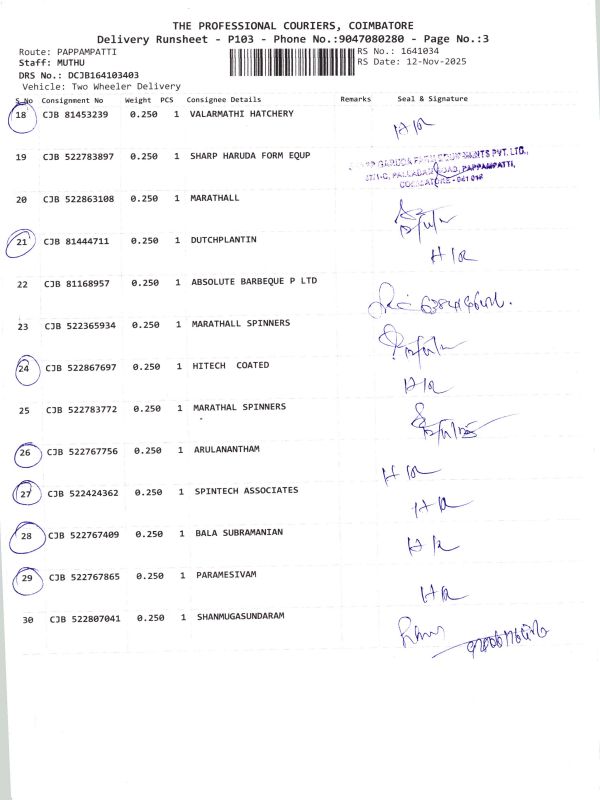 THE PROFESSIONAL COURIERS, COIMBATORE
Delivery Runsheet - P103 - Phone No.:9047080280 - Page No.:3
Route: PAPPAMPATTI RS No.: 1641034
Staff: MUTHU RS Date: 12-Nov-2025
DRS No.: DCJB164103403
Vehicle: Two Wheeler Delivery
S_No Consignment No Weight PCS Consignee Details Remarks Seal & Signature
18 CJB 81453239 0.250 1 VALARMATHI HATCHERY
H/R
19 CJB 522783897 0.250 1 SHARP HARUDA FORM EQUP
GARUDA FARM EQUIPMENTS PVT. LTD.,
PALLADAM ROAD, PAPPAMPATTI,
COIMBATORE - 641 016
20 CJB 522863108 0.250 1 MARATHALL
21 CJB 81444711 0.250 1 DUTCHPLANTIN
H/R
22 CJB 81168957 0.250 1 ABSOLUTE BARBEQUE P LTD
23 CJB 522365934 0.250 1 MARATHALL SPINNERS
24 CJB 522867697 0.250 1 HITECH COATED
H/R
25 CJB 522783772 0.250 1 MARATHAL SPINNERS
26 CJB 522767756 0.250 1 ARULANANTHAM
H/R
27 CJB 522424362 0.250 1 SPINTECH ASSOCIATES
H/R
28 CJB 522767409 0.250 1 BALA SUBRAMANIAN
H/R
29 CJB 522767865 0.250 1 PARAMESIVAM
H/R
30 CJB 522807041 0.250 1 SHANMUGASUNDARAM